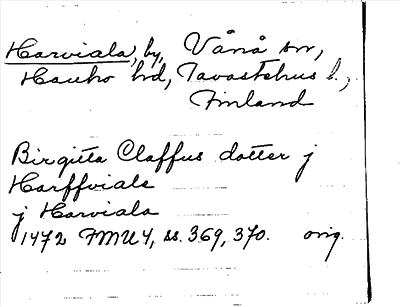 Harviala, by, Vånå sn,
Hauho hd, Tavastehus l.,
Finland
Birgitta Claffus dotter j
Harffviale
j Harviala
1472 FMU 4, ss. 369, 370. orig.